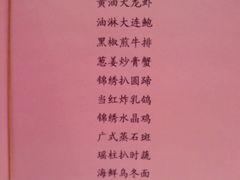 黄油大龙虾
油淋大连鲍
黑椒煎牛排
葱姜炒膏蟹
锦绣扒圆蹄
当红炸乳鸽
锦绣水晶鸡
广式蒸石斑
瑶柱扒时蔬
海鲜乌冬面